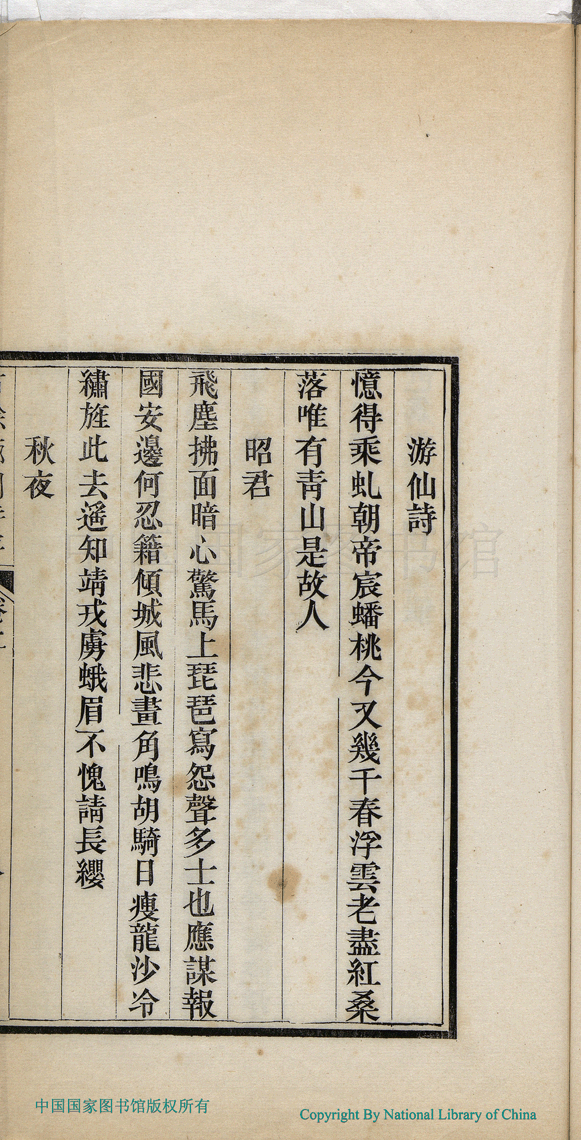 游仙詩
憶得乘虬朝帝宸蟠桃今又幾千春浮雲老盡紅桑
落唯有靑山是故人
昭君
飛塵拂面暗心驚馬上琵琶寫怨聲多士也應謀報
國安邊何忍籍傾城風悲畫角鳴胡騎日瘦龍沙冷
繡旌此去遥知靖戎虜蛾眉不愧請長纓
秋夜
中国国家图书馆版权所有
Copyright By National Library of China